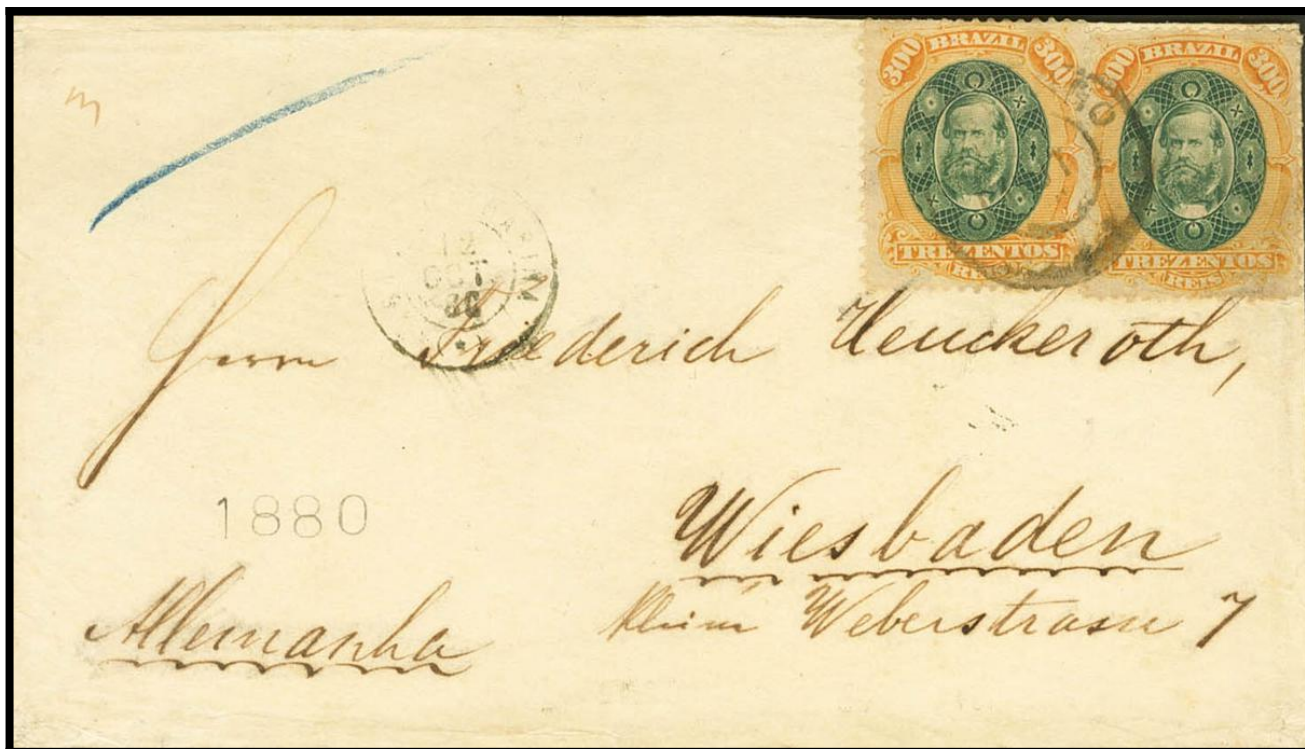 300 BRAZIL 300
TREZENTOS
REIS
300 BRAZIL 300
TREZENTOS
REIS
12
OUT
80
Herrn Friederich Heuckeroth,
1880
Wiesbaden
Allemanha
kleine Weberstrasse 7